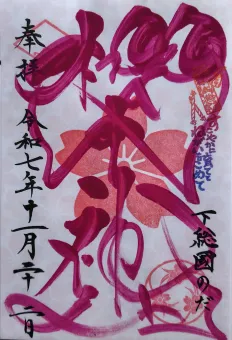 下総國のだ
櫻木神社
奉拝 令和七年十一月二十二日